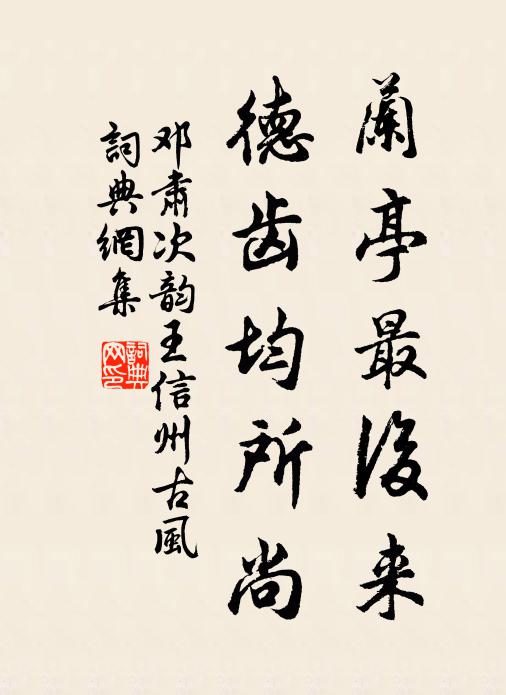 蘭亭最後来
德齿均所尚
邓肃次韵王信州古風
詞典網集
詞典網印